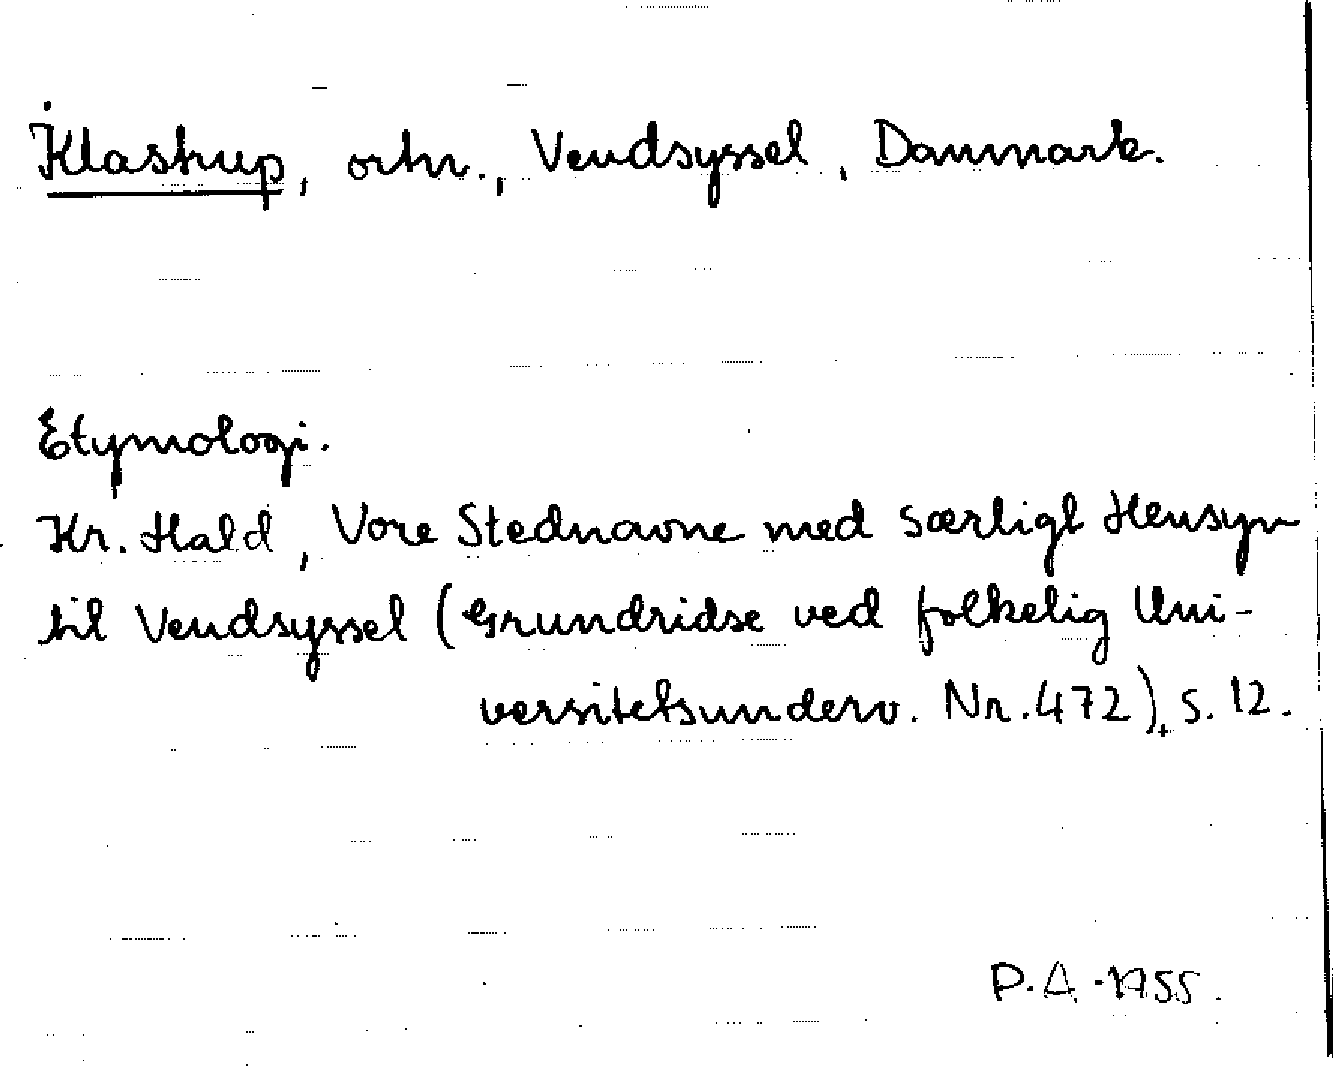 Klastrup, ortn., Vendsyssel, Danmark.
Etymologi.
Kr. Hald, Vore Stednavne med særligt Hensyn
til Vendsyssel (Grundridse ved folkelig Uni-
versitetsunderv. Nr. 472), s. 12.
P.A. 1955.